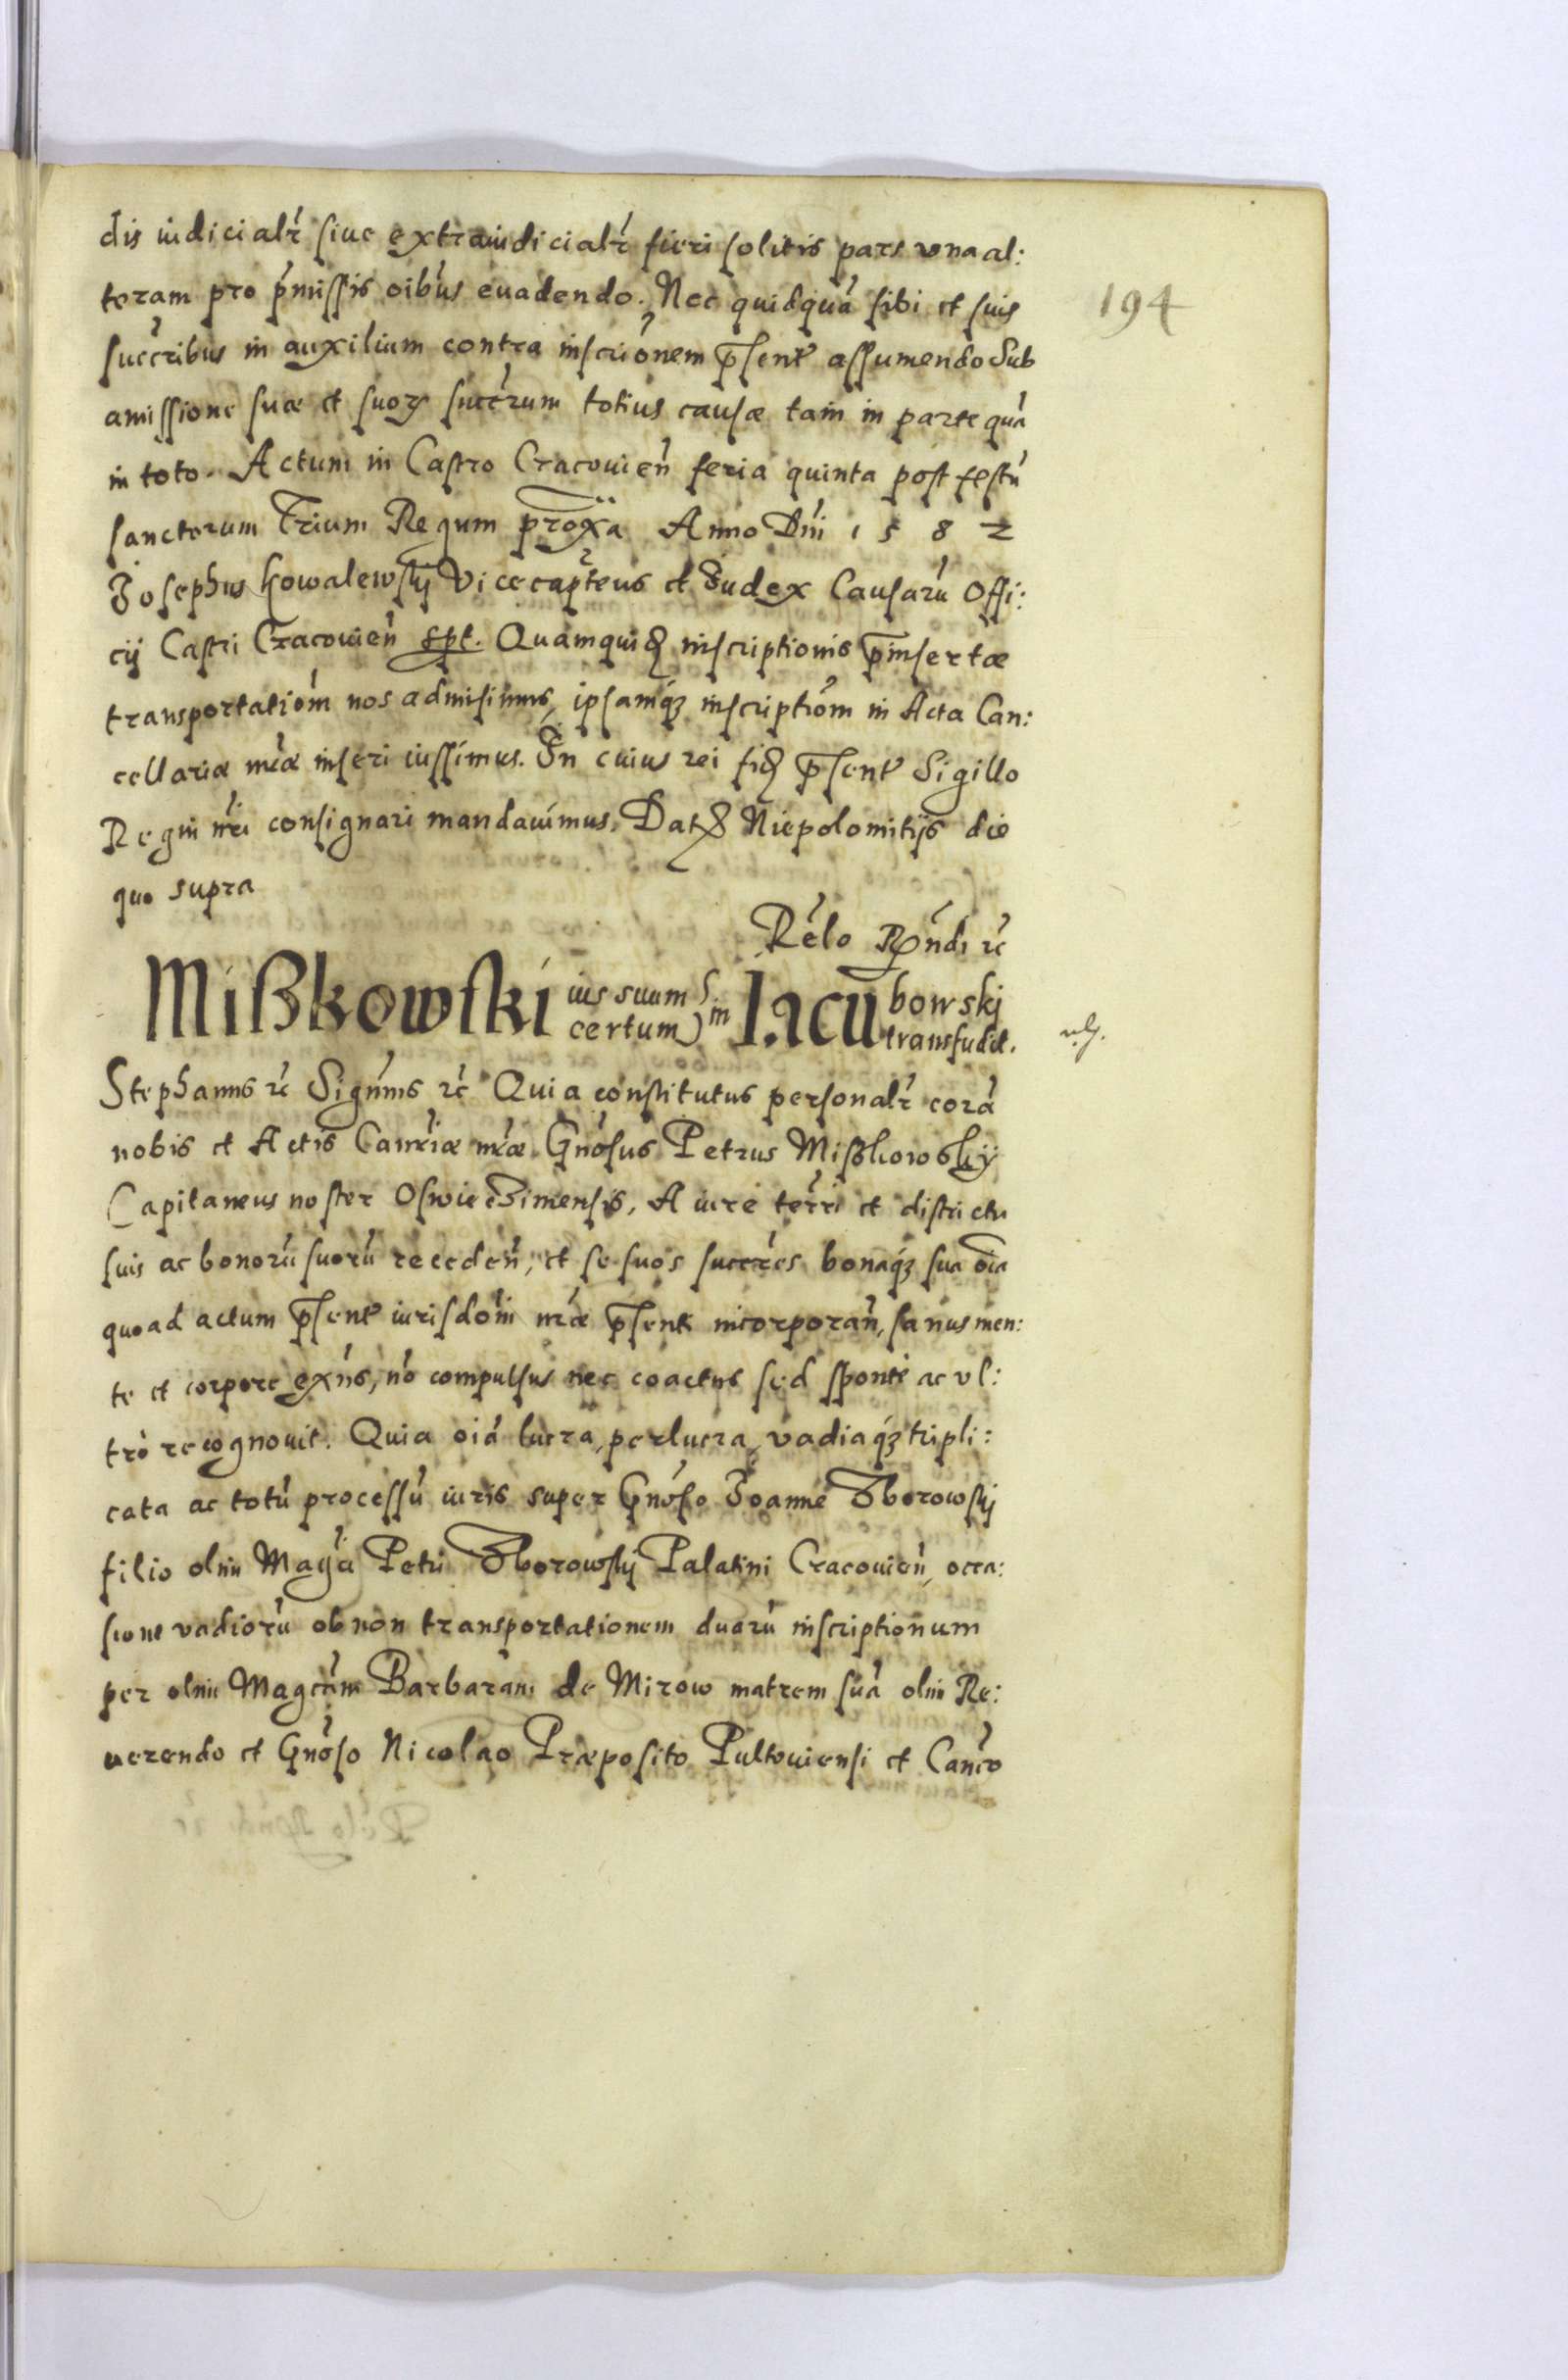 dis iudicialr̃ siue extraiudicialr̃ fieri solitis pars vna al:
teram pro p̃missis oib9 euadendo. Nec quidquã sibi et suis
succr̃ibus in auxilium contra inscriõnem p̃sent̃ assumendo Sub
amissione suæ et suorꝝ succr̃rum totius causæ tam in parte quã
in toto. Actum in Castro Cracouieñ feria quinta post festũ
sanctorum Trium Regum proxĩa Anno Dñi 1582
Josephus Kowalewsky Vicecap̃teus et Judex Causarũ Offi:
cÿ Castri Cracouieñ spt. Quamquidꝫ inscriptionis p̃insertæ
transportatiõm nos admisimus, ipsamqꝫ inscriptiõm in Acta Can:
cellariæ nr̃æ inseri iussimus. In cuius rei fidꝫ p̃sent̃ Sigillo
Regni nr̃i consignari mandauimus. Dat. Niepolomitijs die
quo supra
Rẽlo Rp̃ndi rc̃
Mißkowski ius suum certum in Jacubowskj transfudit.
194
Stephanus rc̃ Sigñmus rc̃ Quia constitutus personalr̃ corã
nobis et Actis Canr̃iæ nr̃æ Gñosus Petrus Mißkowskÿ
Capitaneus noster Oswieczimensis, A iure terr̃i et districtu
suis ac bonorũ suorũ recedeñ, et se suos succr̃es bonaqꝫ sua oĩa
quoad actum p̃sent̃ iurisdoĩ nr̃æ p̃senti incorporañ, sanus men:
te et corpore exñs, nõ compulsus nec coactus sed sponte ac vl:
tro recognouit. Quia oiã lucra, perlucra, vadiaqꝫ tripli:
cata ac totũ processũ iuris super Gñoso Joanne Zborowsky
filio olim Mag̃ci Petri Zborowsky Palatini Cracouieñ, occa:
sione vadiorũ ob non transportationem duarũ inscriptionum
per olim Magc̃am Barbaram de Mirow matrem suã olim Re:
uerendo et Gñoso Nicolao Præposito Pultouiensi et Canc̃o